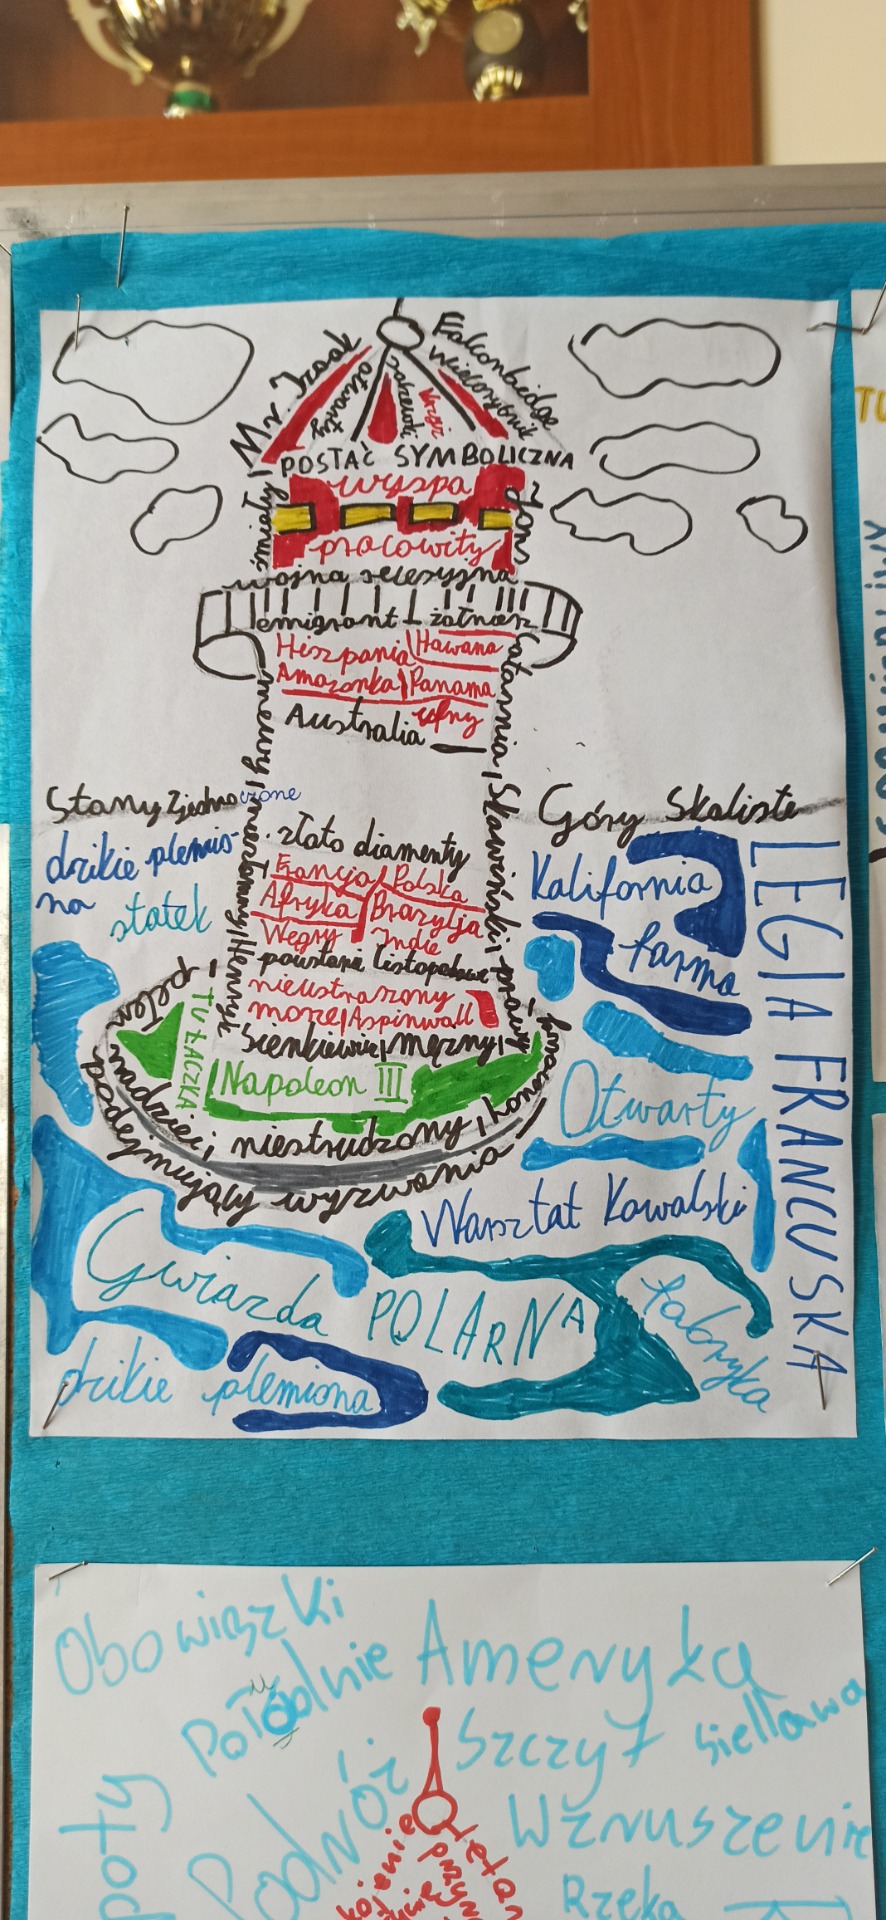 Mr. Izaak
otwarty
Falconbridge
wielorybnik
POSTAĆ SYMBOLICZNA
wyspa
pracowity
wojna secesyjna
emigrant - żołnierz
Hiszpania Hawana
Amazonka Panama
ufny
Australia
mewy
Latarnia, Skawiński, prawy
Henryk
Stany Zjednoczone
dzikie plemio-
na
statek
złoto diamenty
Francja Polska
Afryka Brazylja
Węgry Indie
powstanie listopadowe
nieustraszony
morze Aspinwall
Sienkiewicz mężny
TUŁACZKA
Napoleon III
pełen nadziei, niestrudzony, honorowy
podejmujący wyzwania
Góry Skaliste
Kalifornia
farma
LEGIA FRANCUSKA
Otwarty
Warsztat Kowalski
Gwiazda POLARNA
fabryka
dzikie plemiona
Obowiązki
Połódnie
u
Ameryka
Szczyt
sielława
Podróż
Wzruszenie
Rzeka